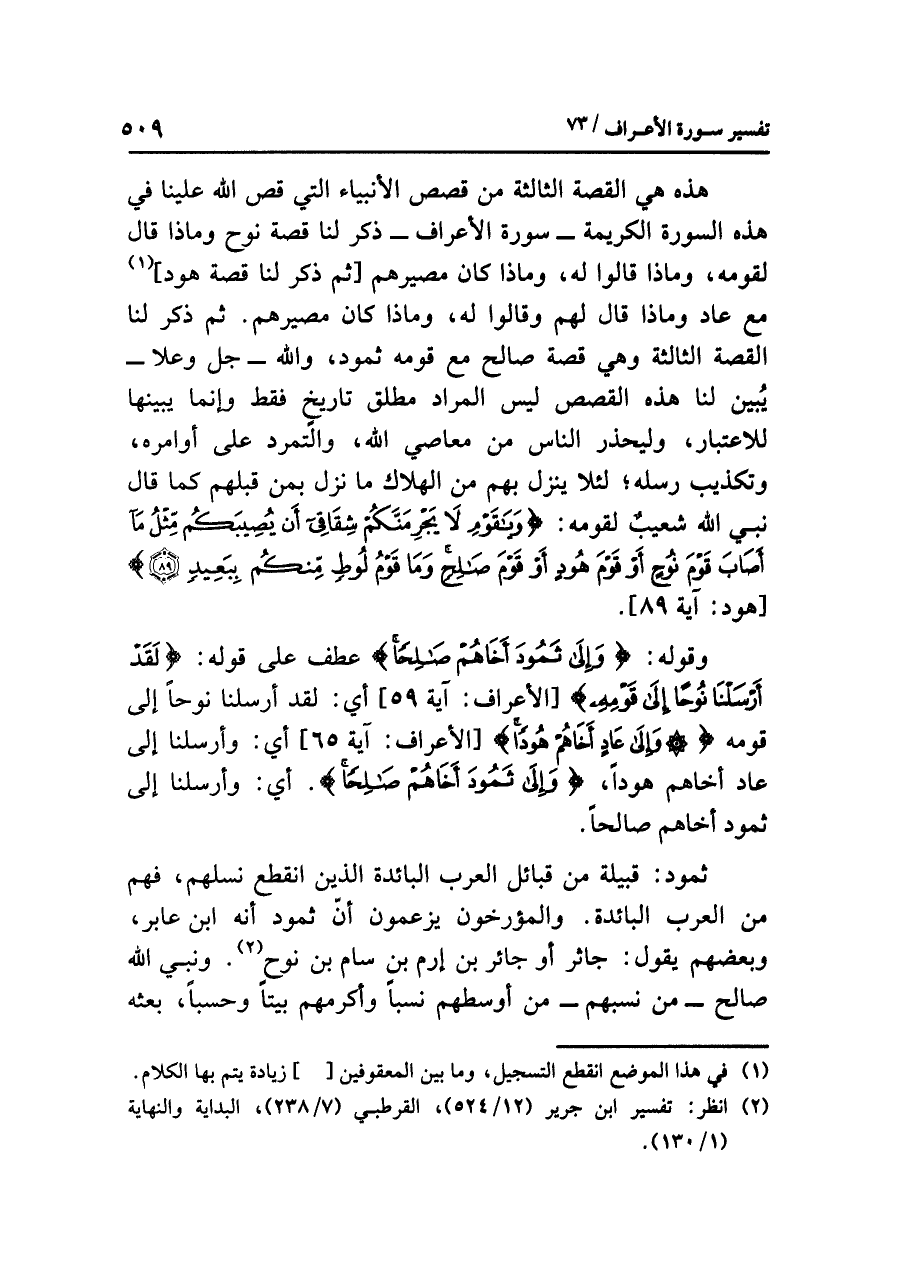 تفسير سورة الأعراف / ٧٣
٥٠٩
هذه هي القصة الثالثة من قصص الأنبياء التي قص الله علينا في
هذه السورة الكريمة ـ سورة الأعراف ـ ذكر لنا قصة نوح وماذا قال
لقومه، وماذا قالوا له، وماذا كان مصيرهم [ثم ذكر لنا قصة هود](١)
مع عاد وماذا قال لهم وقالوا له، وماذا كان مصيرهم. ثم ذكر لنا
القصة الثالثة وهي قصة صالح مع قومه ثمود، والله ـ جل وعلا ـ
يُبين لنا هذه القصص ليس المراد مطلق تاريخ فقط وإنما يبينها
للاعتبار، وليحذر الناس من معاصي الله، والتمرد على أوامره،
وتكذيب رسله؛ لئلا ينزل بهم من الهلاك ما نزل بمن قبلهم كما قال
نبي الله شعيبٌ لقومه: ﴿وَيَٰقَوْمِ لَا يَجْرِمَنَّكُمْ شِقَاقِىٓ أَن يُصِيبَكُم مِّثْلُ مَآ
أَصَابَ قَوْمَ نُوحٍ أَوْ قَوْمَ هُودٍ أَوْ قَوْمَ صَٰلِحٍۚ وَمَا قَوْمُ لُوطٍ مِّنكُم بِبَعِيدٍ ٨٩﴾
[هود: آية ٨٩].
وقوله: ﴿وَإِلَىٰ ثَمُودَ أَخَاهُمْ صَٰلِحًاۚ﴾ عطف على قوله: ﴿لَقَدْ
أَرْسَلْنَا نُوحًا إِلَىٰ قَوْمِهِۦ﴾ [الأعراف: آية ٥٩] أي: لقد أرسلنا نوحاً إلى
قومه ﴿۞ وَإِلَىٰ عَادٍ أَخَاهُمْ هُودًاۚ﴾ [الأعراف: آية ٦٥] أي: وأرسلنا إلى
عاد أخاهم هوداً، ﴿وَإِلَىٰ ثَمُودَ أَخَاهُمْ صَٰلِحًاۚ﴾. أي: وأرسلنا إلى
ثمود أخاهم صالحاً.
ثمود: قبيلة من قبائل العرب البائدة الذين انقطع نسلهم، فهم
من العرب البائدة. والمؤرخون يزعمون أنّ ثمود أنه ابن عابر،
وبعضهم يقول: جاثر أو جائر بن إرم بن سام بن نوح(٢). ونبي الله
صالح ـ من نسبهم ـ من أوسطهم نسباً وأكرمهم بيتاً وحسباً، بعثه
(١) في هذا الموضع انقطع التسجيل، وما بين المعقوفين [ ] زيادة يتم بها الكلام.
(٢) انظر: تفسير ابن جرير (١٢/ ٥٢٤)، القرطبي (٧/ ٢٣٨)، البداية والنهاية
(١/ ١٣٠).